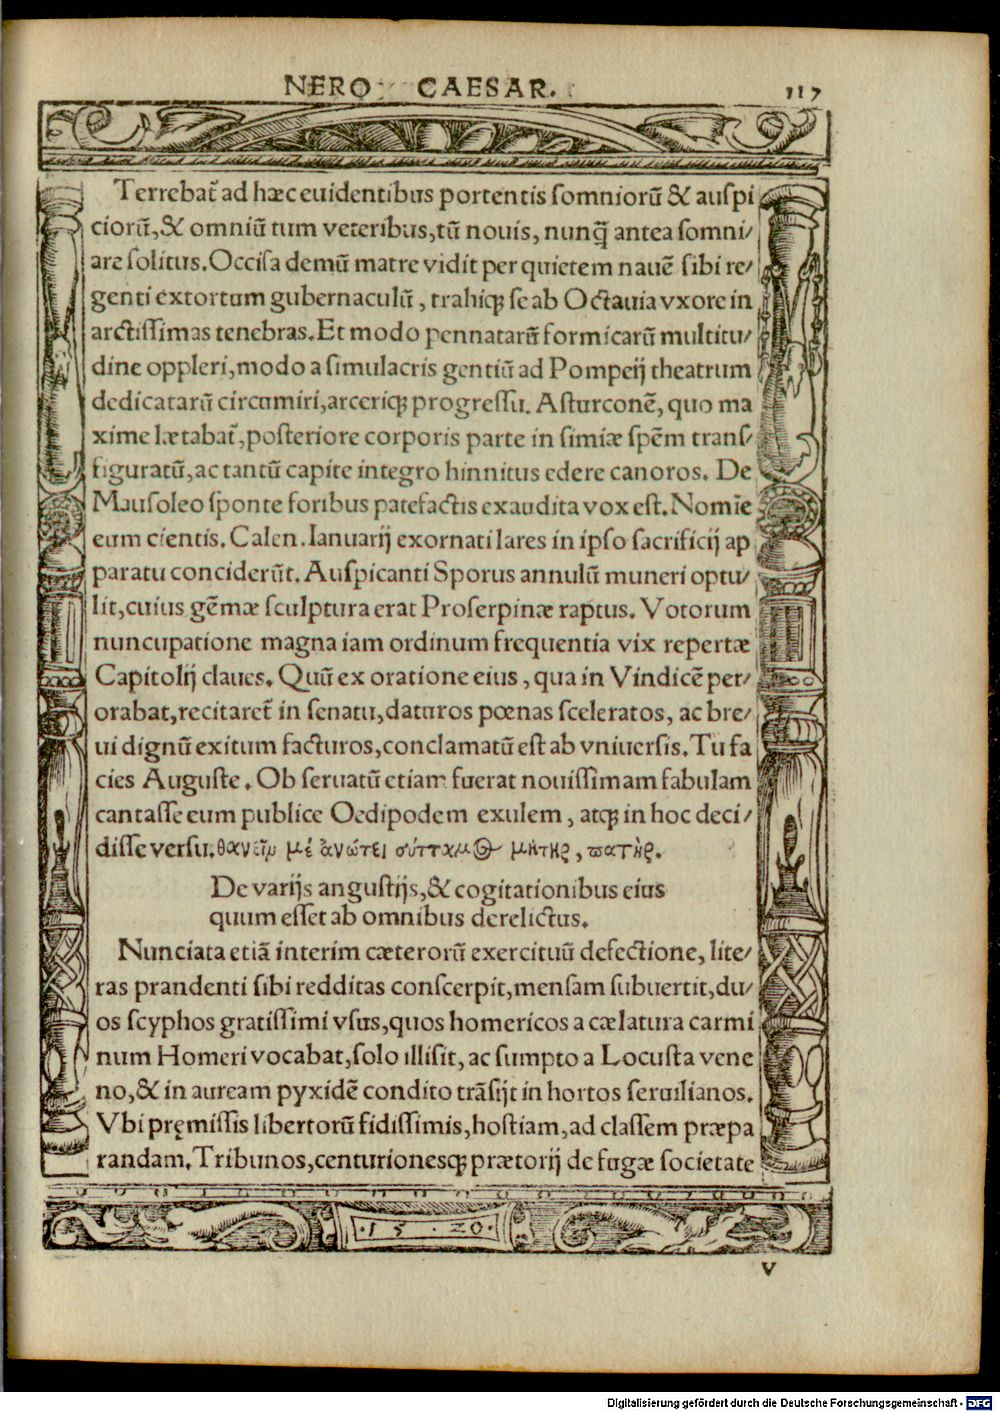 NERO CAESAR.
117
Terrebat̃ ad hæc euidentibus portentis somniorũ & auspi
ciorũ,& omniũ tum veteribus,tũ nouis, nunq̃ antea somni/
are solitus. Occisa demũ matre vidit per quietem nauẽ sibi re/
genti extortum gubernaculũ, trahiqꝫ se ab Octauia vxore in
arctissimas tenebras. Et modo pennatarũ formicarũ multitu/
dine oppleri, modo a simulacris gentiũ ad Pompeij theatrum
dedicatarũ circumiri, arceriqꝫ progressu. Asturconẽ, quo ma
xime lætabat̃, posteriore corporis parte in simiæ spẽm trans/
figuratũ, ac tantũ capite integro hinnitus edere canoros. De
Mausoleo sponte foribus patefactis exaudita vox est. Nomĩe
eum cientis. Calen. Ianuarij exornati lares in ipso sacrificij ap
paratu conciderũt. Auspicanti Sporus annulũ muneri optu/
lit, cuius gẽmæ sculptura erat Proserpinæ raptus. Votorum
nuncupatione magna iam ordinum frequentia vix repertæ
Capitolij claues. Quũ ex oratione eius, qua in Vindicẽ per/
orabat, recitaret̃ in senatu, daturos pœnas sceleratos, ac bre/
ui dignũ exitum facturos, conclamatũ est ab vniuersis. Tu fa
cies Auguste. Ob seruatũ etiam fuerat nouissimam fabulam
cantasse eum publice Oedipodem exulem, atqꝫ in hoc deci/
disse versu. θανεῖν μέ ἀνώτει σύτταμος μήτηρ, πατήρ.
De varijs angustijs,& cogitationibus eius
quum esset ab omnibus derelictus.
Nunciata etiã interim cæterorũ exercituũ defectione, lite/
ras prandenti sibi redditas conscerpit, mensam subuertit, du/
os scyphos gratissimi vsus, quos homericos a cælatura carmi
num Homeri vocabat, solo illisit, ac sumpto a Locusta vene
no,& in auream pyxidẽ condito trãsijt in hortos seruilianos.
Vbi pręmissis libertorũ fidissimis, hostiam, ad classem præpa
randam. Tribunos, centurionesqꝫ prætorij de fugæ societate
·15 20·
V
Digitalisierung gefördert durch die Deutsche Forschungsgemeinschaft - DFG